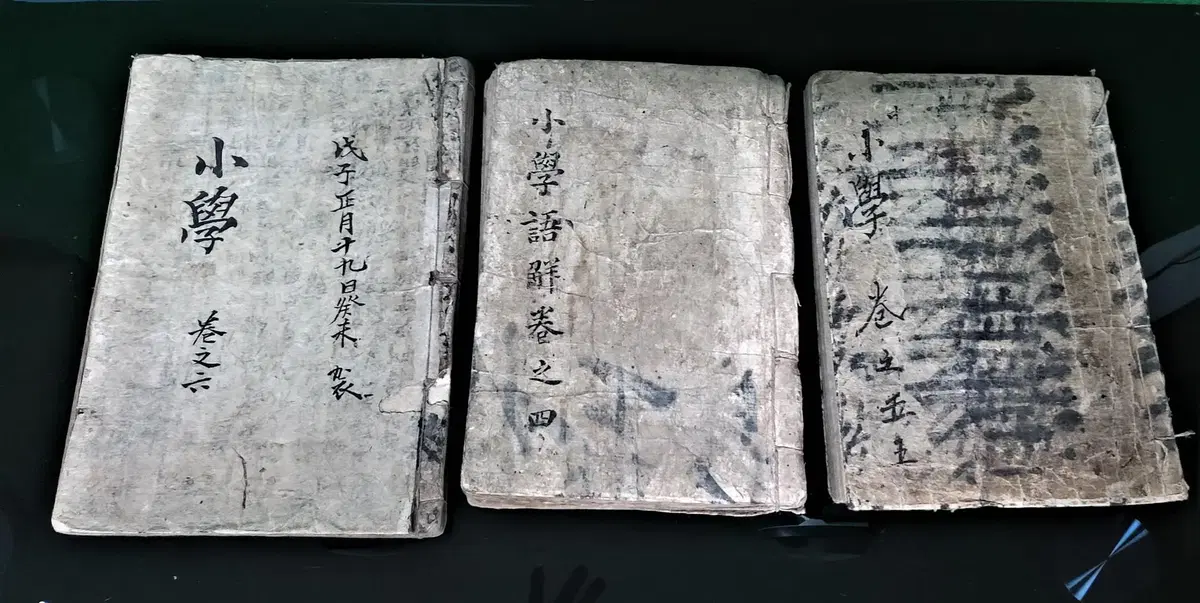 戊子正月十九日癸未
小學 卷之六
小學語觧卷之四
小學 卷之五